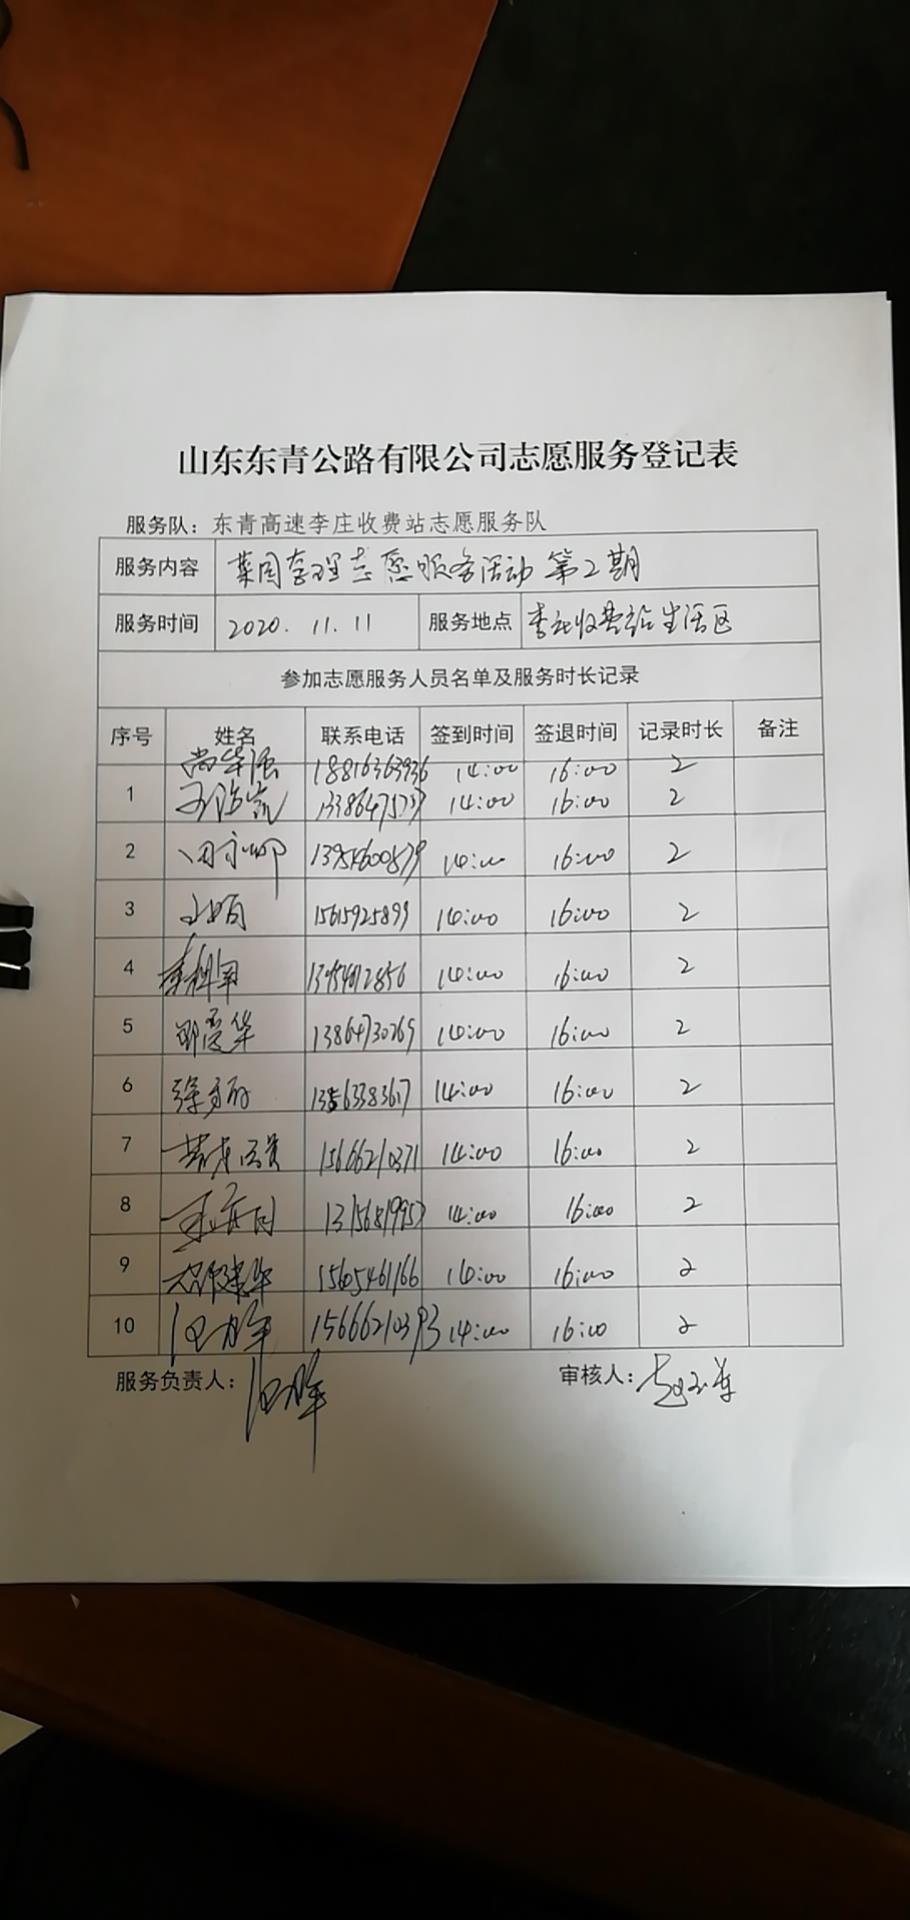 山东东青公路有限公司志愿服务登记表
服务队：东青高速李庄收费站志愿服务队
服务内容 菜园整理志愿服务活动 第2期
服务时间 2020.11.11 服务地点 李庄收费站生活区
参加志愿服务人员名单及服务时长记录
序号 姓名 联系电话 签到时间 签退时间 记录时长 备注
尚华强 18816363936 14:00 16:00 2
1 14:00 16:00 2
2 14:00 16:00 2
3 15615925899 14:00 16:00 2
4 李利军 14:00 16:00 2
5 邵爱华 13864730269 14:00 16:00 2
6 14:00 16:00 2
7 15666210371 14:00 16:00 2
8 14:00 16:00 2
9 15605461166 14:00 16:00 2
10 15666210393 14:00 16:00 2
服务负责人： 审核人：